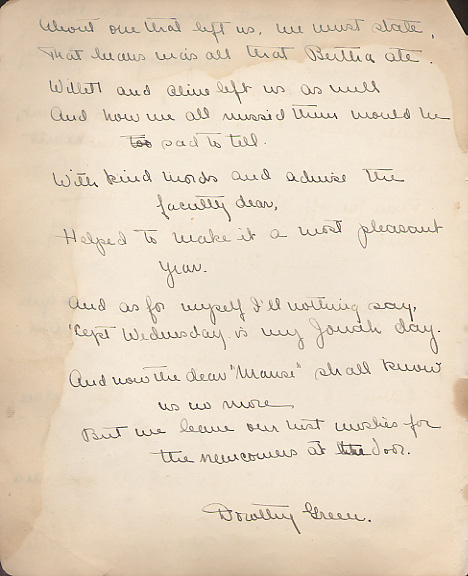 About one that left us, we must state,
That beans was all that Bertha ate.
Willett and Aline left us as well
And how we all missed them would be
too sad to tell.
With kind words and advise the
faculty dear,
Helped to make it a most pleasant
year.
And as for myself I'll nothing say,
'Cept Wednesday is my Jonah day.
And now the dear "Manse" shall know
us no more
But we leave our best wishes for
the newcomers at the door.
Dorothy Green.